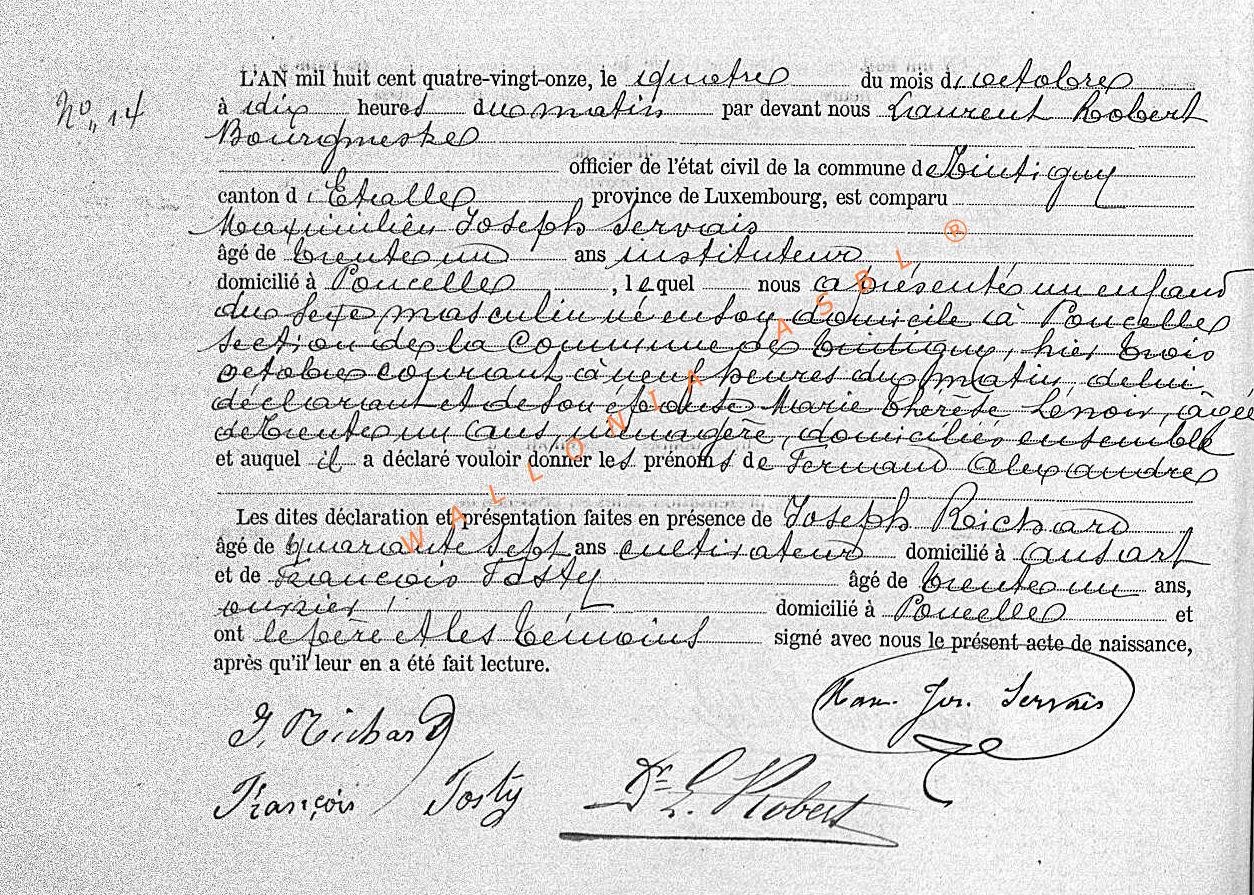 L'AN mil huit cent quatre-vingt-onze, le quatre du mois d'octobre
N° 14
à dix heures du matin par devant nous Laurent Robert
Bourgmestre
officier de l'état civil de la commune de Tintigny
canton d'Etalle province de Luxembourg, est comparu
Maximilien Joseph Servais
âgé de trente un ans instituteur
domicilié à Poncelle, lequel nous a présenté un enfant
du sexe masculin né en son domicile à Poncelle
section de la Commune de Tintigny, hier trois
octobre courant à neuf heures du matin de lui
déclarant et de son épouse Marie Thérèse Lenoir, âgée
de trente un ans, ménagère, domiciliés ensemble
et auquel il a déclaré vouloir donner les prénoms de Fernand Alexandre
Les dites déclaration et présentation faites en présence de Joseph Richard
âgé de quarante sept ans cultivateur domicilié à Ansart
et de François Tosty âgé de trente un ans,
ouvrier domicilié à Poncelle et
ont le père et les témoins signé avec nous le présent acte de naissance,
après qu'il leur en a été fait lecture.
Max. Jos. Servais
J. Richard
François Tosty
Dr L. Robert
WALLONIA ASBL ®